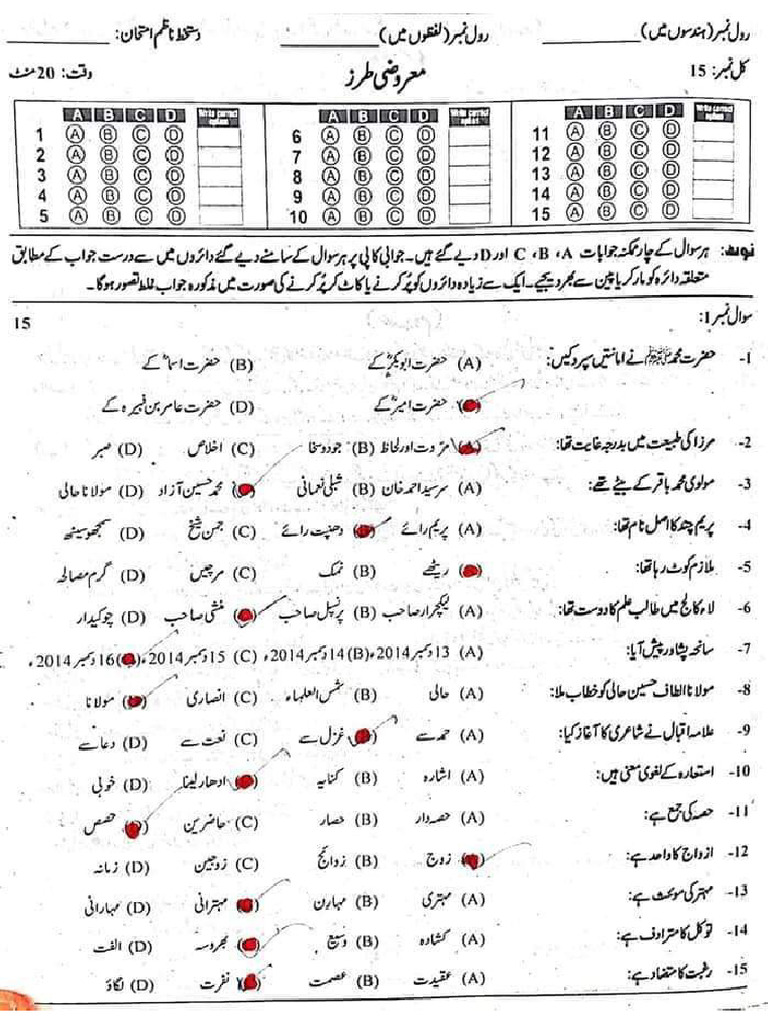 رول نمبر (ہندسوں میں) ____________ رول نمبر (لفظوں میں) ____________ دستخط ناظم امتحان: ____________
کل نمبر: 15 معروضی طرز وقت: 20 منٹ
A B C D Write correct option A B C D Write correct option A B C D Write correct option
1 A B C D 6 A B C D 11 A B C D
2 A B C D 7 A B C D 12 A B C D
3 A B C D 8 A B C D 13 A B C D
4 A B C D 9 A B C D 14 A B C D
5 A B C D 10 A B C D 15 A B C D
نوٹ: ہر سوال کے چار ممکنہ جوابات A، B، C اور D دیے گئے ہیں۔ جوابی کاپی پر ہر سوال کے سامنے دیے گئے دائروں میں سے درست جواب کے مطابق
متعلقہ دائرہ کو مارکر یا پین سے بھر دیجیے۔ ایک سے زیادہ دائروں کو پُر کرنے یا کاٹ کر پُر کرنے کی صورت میں مذکورہ جواب غلط تصور ہوگا۔
سوال نمبر 1: 15
1- حضرت محمد ﷺ نے امانتیں سپرد کیں: (A) حضرت ابوبکرؓ کے (B) حضرت اسماؓ کے
حضرت امیرؓ کے (D) حضرت عامر بن فہیرہ کے
2- مرزا کی طبیعت میں بدرجہ غایت تھا: (A) مروت اور لحاظ (B) جود و سخا (C) اخلاص (D) صبر
3- مولوی محمد باقر کے بیٹے تھے: (A) سرسید احمد خان (B) شبلی نعمانی محمد حسین آزاد (D) مولانا حالی
4- پریم چند کا اصل نام تھا: (A) پریم رائے دھنپت رائے (C) جمن شیخ (D) سمجھو سیٹھ
5- ملازم کوٹ رہا تھا: ریٹھے (B) نمک (C) مرچیں (D) گرم مصالحہ
6- لاء کالج میں طالب علم کا دوست تھا: (A) لیکچرار صاحب (B) پرنسپل صاحب منشی صاحب (D) چوکیدار
7- سانحہ پشاور پیش آیا: (A) 13 دسمبر 2014ء (B) 14 دسمبر 2014ء (C) 15 دسمبر 2014ء 16 دسمبر 2014ء
8- مولانا الطاف حسین حالی کو خطاب ملا: (A) حالی (B) شمس العلماء (C) انصاری مولانا
9- علامہ اقبال نے شاعری کا آغاز کیا: (A) حمد سے غزل سے (C) نعت سے (D) دعا سے
10- استعارہ کے لغوی معنی ہیں: (A) اشارہ (B) کنایہ ادھار لینا (D) خوبی
11- حصہ کی جمع ہے: (A) حصہ دار (B) حصار (C) حاضرین (D) حصص
12- ازواج کا واحد ہے: زوج (B) زوائج (C) زوجین (D) زمانہ
13- مہتر کی مونث ہے: (A) مہتری (B) مہارن مہترانی (D) مہارانی
14- توکل کا مترادف ہے: (A) کشادہ (B) وسیع بھروسہ (D) الفت
15- رغبت کا متضاد ہے: (A) عقیدت (B) عصمت نفرت (D) لگاؤ